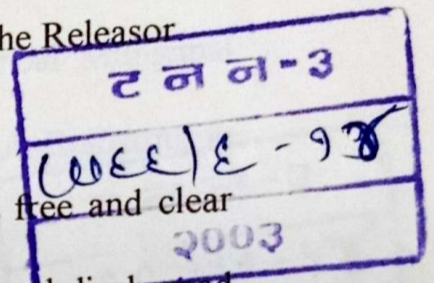 he Releasor
ट न न - ३
७७६६/६ - १३
free and clear
२००३